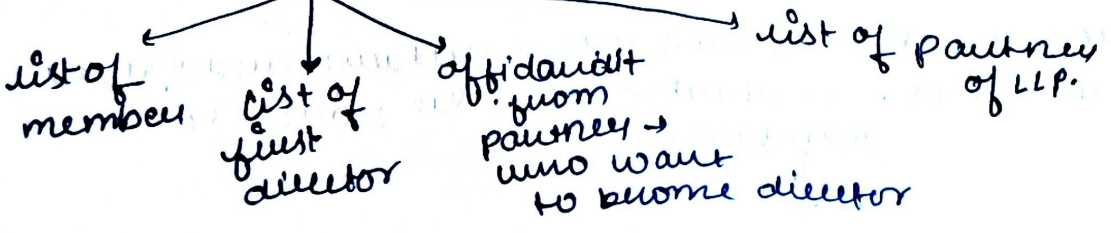 list of
member
list of
first
director
affidavit
from
partner →
who want
to become director
list of partner
of LLP.